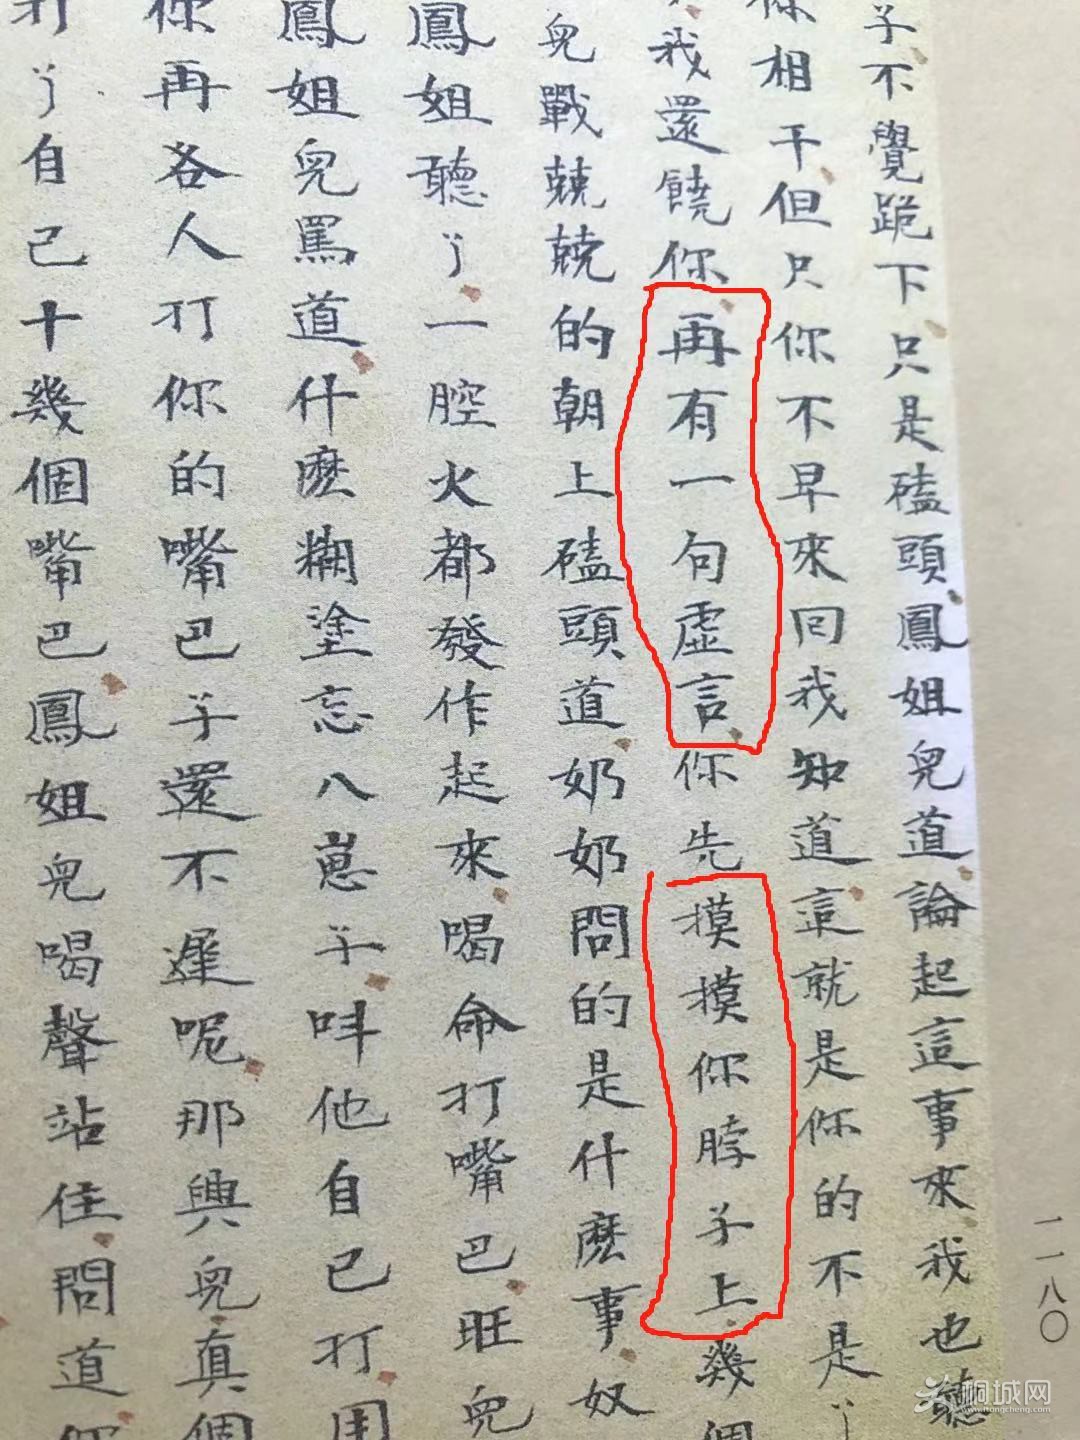 子不覺跪下只是磕頭鳳姐兒道論起這事來我也聽
你相干但只你不早來回我知道這就是你的不是了
我還饒你再有一句虛言你先摸摸你脖子上幾個
兒戰兢兢的朝上磕頭道奶奶問的是什麽事奴
鳳姐聽了一腔火都發作起來喝命打嘴巴旺兒
鳳姐兒罵道什麽糊塗忘八崽子呌他自己打用
你再各人打你的嘴巴子還不遲呢那興兒真個
打了自己十幾個嘴巴鳳姐兒喝聲站住問道你
一一八〇
桐城网
tongcheng.com